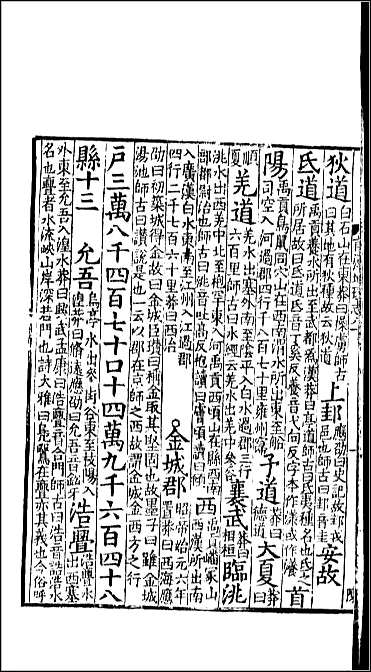 狄道白石山在東莽曰操虜師古曰其地有狄種故云狄道上邽應劭曰史記故邽戎邑也師古曰邽音圭安故
氐道禹貢養水所出至武都為漢莽曰亭道師古曰氐夷種名也氐之所居故曰氐道氐音丁奚反養音弋向反字本作漾或作瀁首
陽禹貢鳥鼠同穴山在西南渭水所出東至船司空入河過郡四行千八百七十里雍州寖予道莽曰德道大夏莽曰
順夏羌道羌水出塞外南至陰平入白水過郡三行六百里師古曰水經云羌水出羌中參谷襄武莽曰相桓臨洮
洮水出西羌中北至枹罕東入河禹貢西頃山在縣西南部都尉治也師古曰洮音吐高反枹讀曰膚頃讀曰傾西禹貢嶓冢山西漢所出南
入廣漢白水東南至江州入江過郡四行二千七百六十里莽曰西治金城郡昭帝始元六年置莽曰西海應
劭曰初築城得金故曰金城臣瓚曰稱金取其堅固也故墨子曰雖金城湯池師古曰瓚說是也一云以郡在京師之西故謂金城金西方之行
戶三萬八千四百七十口十四萬九千六百四十八
縣十三允吾烏亭水出參街谷東至枝陽入湟莽曰修遠應劭曰允吾音鈆牙浩亹浩亹水出西塞
外東至允吾入湟水莽曰興武孟康曰浩亹音合門師古曰浩音誥浩水名也亹者水流峽山岸深若門也詩大雅曰鳧鷖在亹亦其義也今俗呼